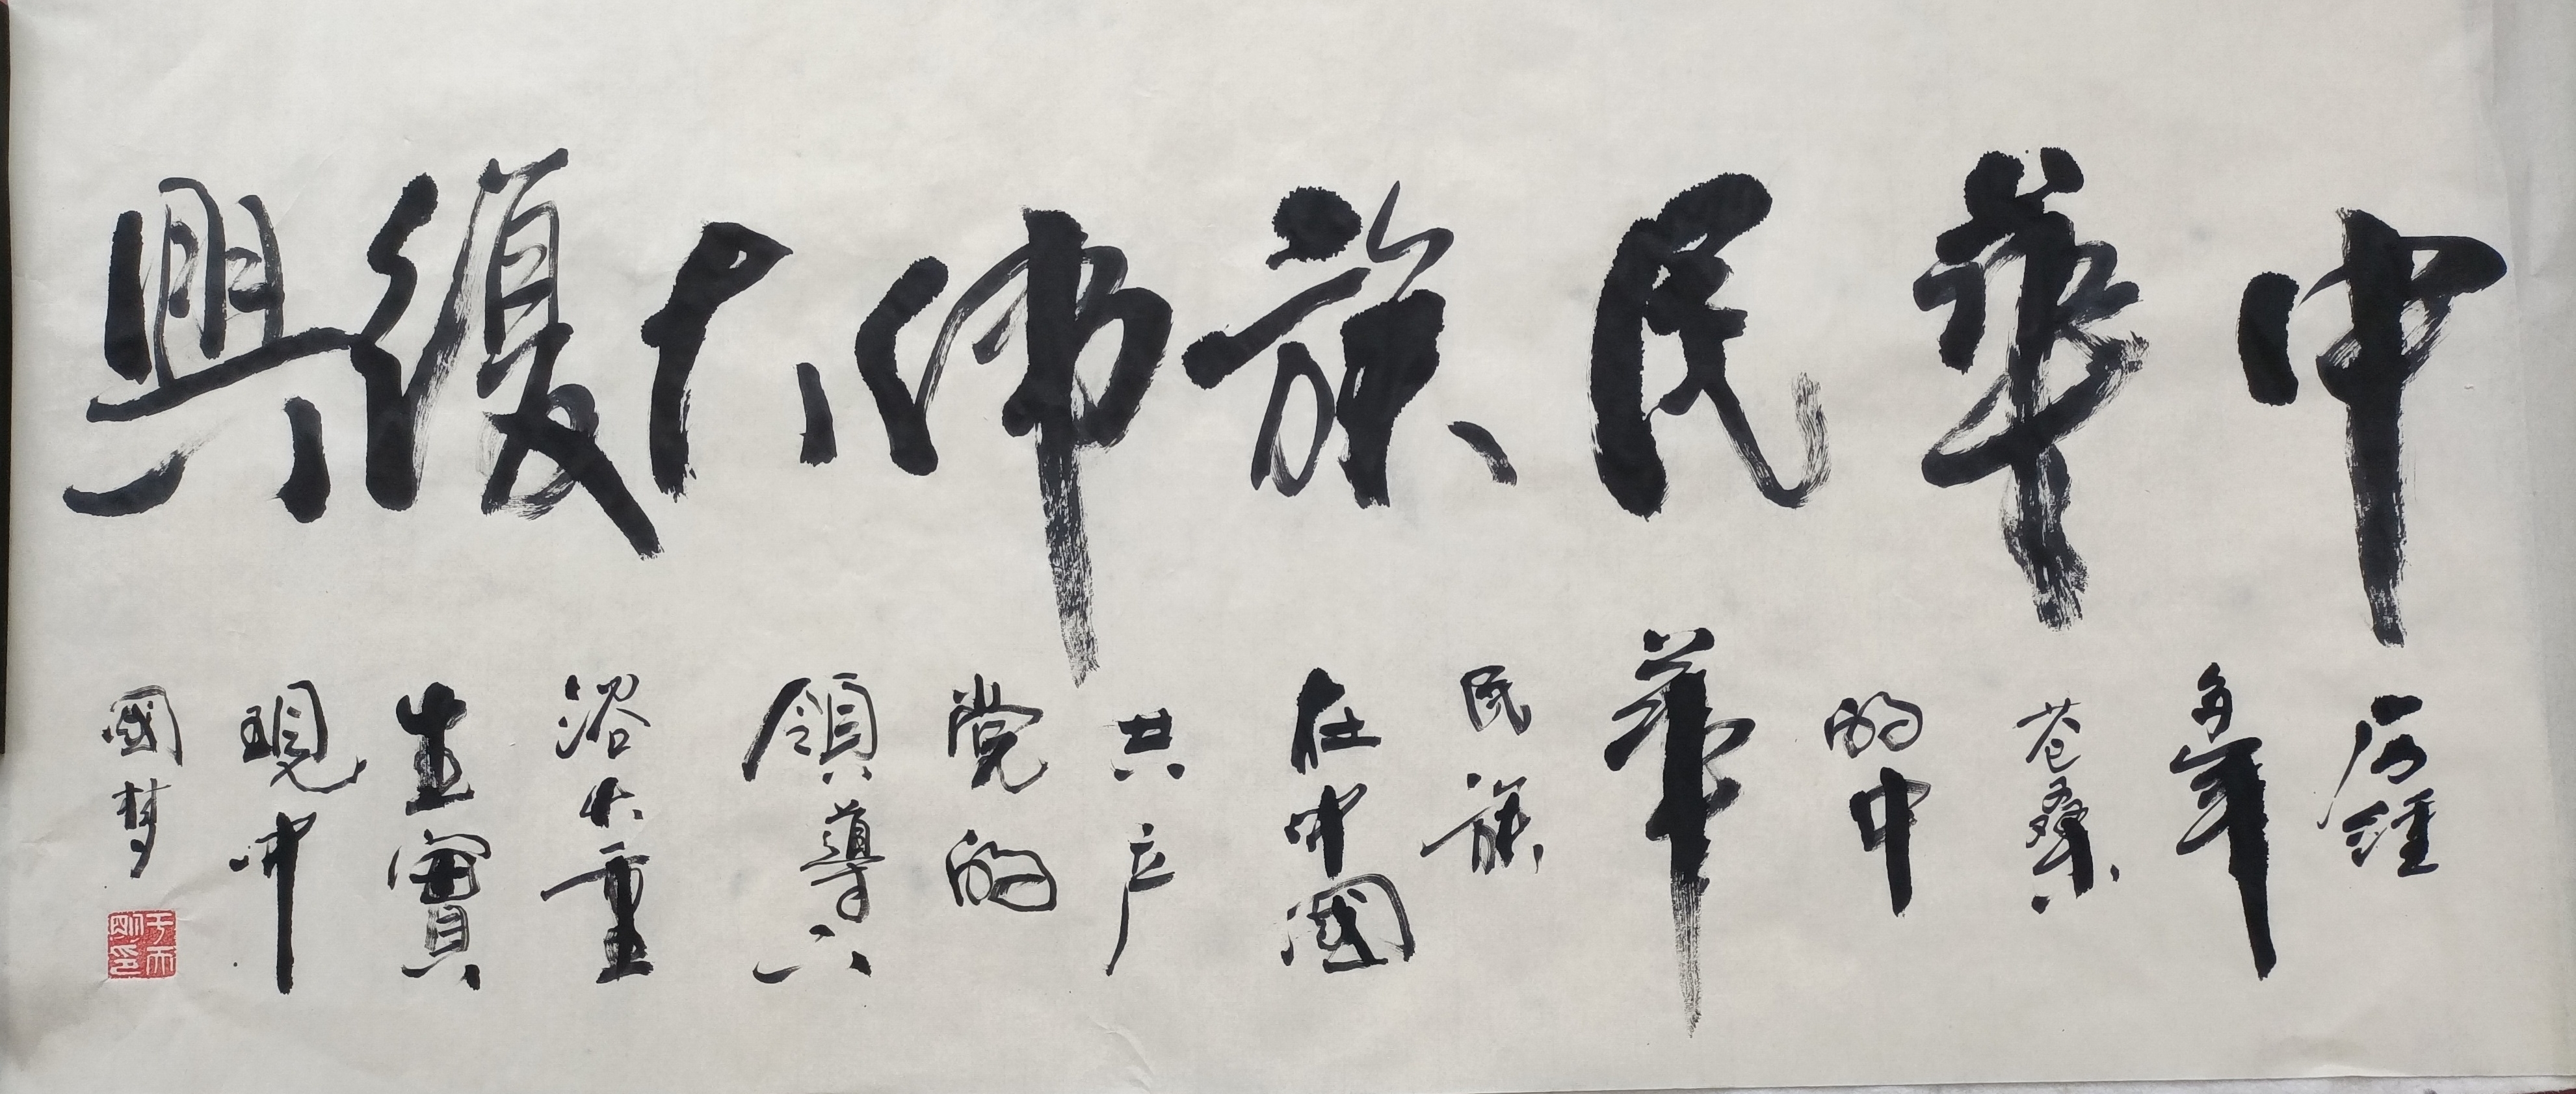 中華民族伟大復興
历經
多年
苍桑
的中
華
民族
在中國
共产
党的
領導下
浴火重
生實
現中
國梦